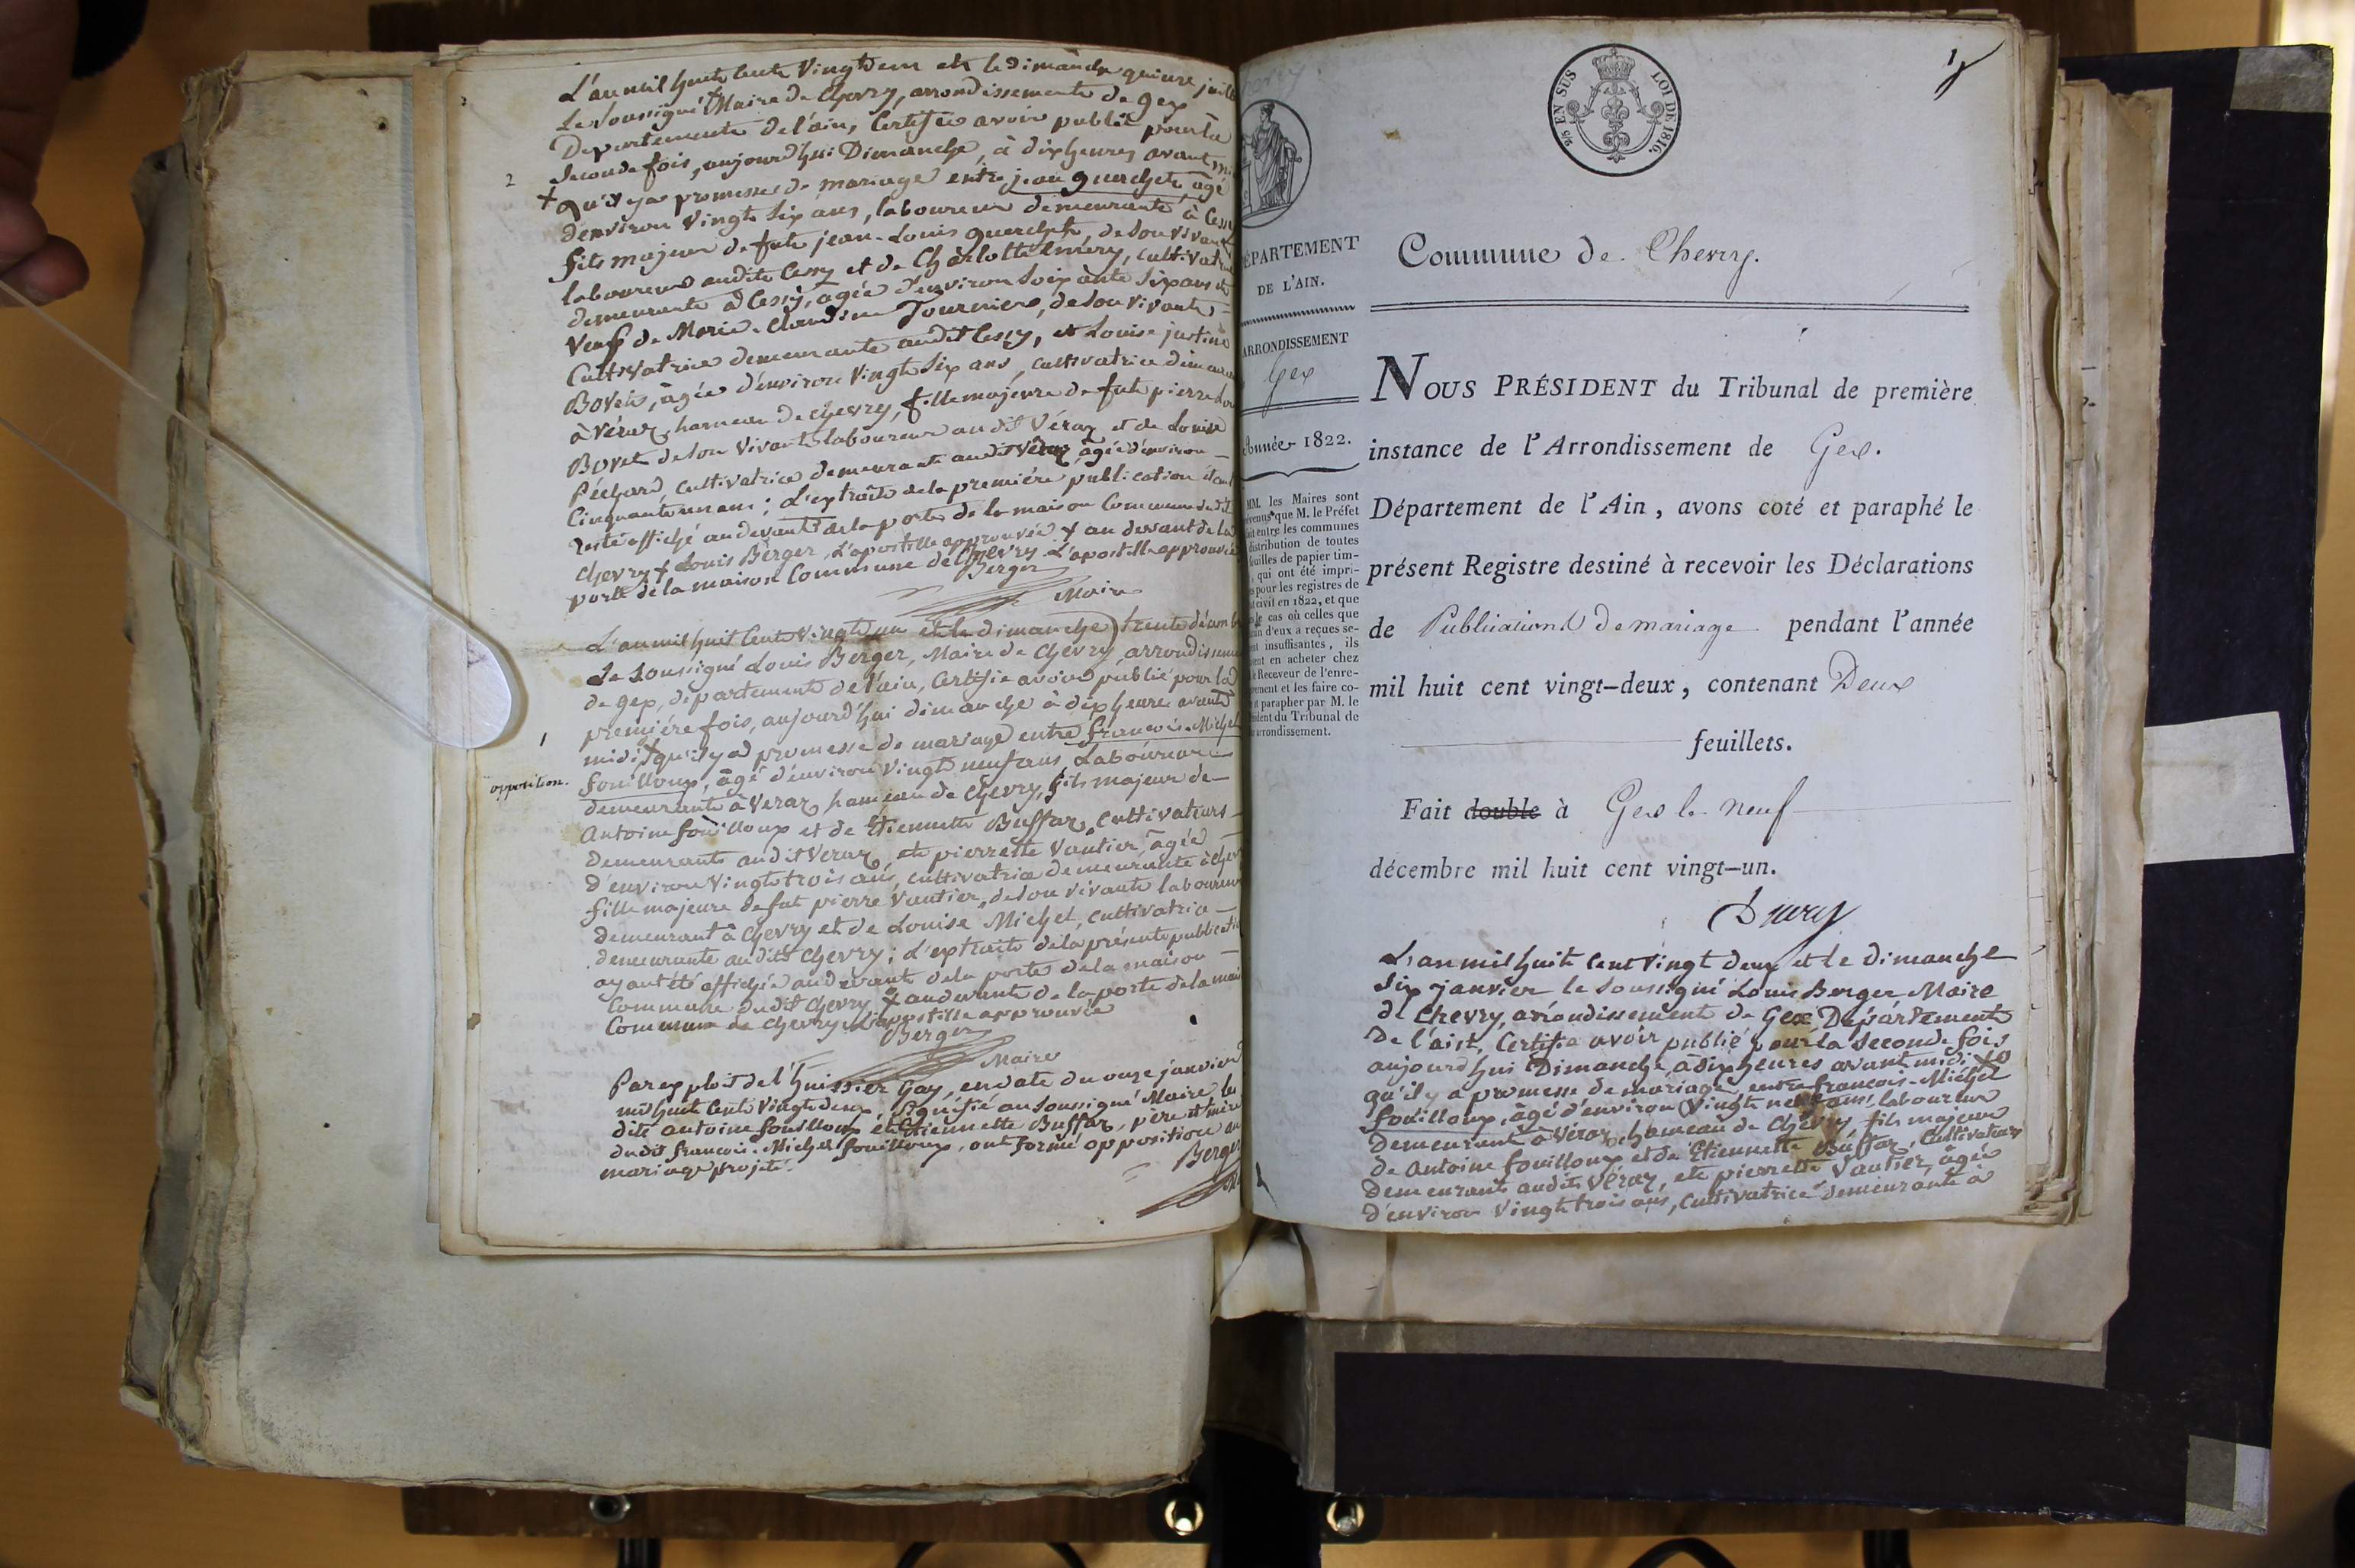 L'an mil huit cent vingt un et le dimanche quinze juill
Le soussigné + Maire de Chevry, arrondissement de gex
Departement de l'ain, Certifie avoir publié pour la
seconde fois, aujourd'hui Dimanche, à dix heures avant mi
2
+ qu'il y a promesse de mariage entre jean querchet, âgé
d'environ vingt six ans, laboureur demeurant à Cess
fils majeur de fut jean-Louis querchet, de son vivant
laboureur audit Cessy et de Charlotte Emery, cultivatrice
demeurante à Cessy, agée d'environ soixante six ans et
Veuf de Marie-Claudine Tournier, de son vivant
Cultivatrice demeurante audit Cessy, et Louise justine
Bovet, âgée d'environ vingt six ans, cultivatrice demeur
à Véraz, hameau de Chevry, fille majeure de fut pierre Lou
Bovet de son vivant laboureur audit Véraz et de Louise
Péchard, cultivatrice demeurante audit Véraz, âgée d'environ
Cinquante un ans; L'extrait de la première publication étant
resté affiché au devant de la porte de la maison Commune dudit
Chevry + Louis Berger, L'apostille approuvée + au devant de la
porte de la maison Commune de Chevry L'apostille approuvée
Berger
Maire
L'an mil huit cent vingt un et le dimanche trente décemb
Le soussigné Louis Berger, Maire de Chevry, arrondissem
de gex, département de l'ain, Certifie avoir publié pour la
première fois, aujourd'hui dimanche à dix heures avant
1
midi + qu'il y a promesse de mariage entre françois-Michel
opposition.
fouilloux, âgé d'environ vingt neuf ans Laboureur
demeurant à Veraz, hameau de Chevry, fils majeur de
Antoine fouilloux et de Etiennette Buffaz, Cultivateurs
demeurants audit Veraz, et pierrette Vautier, âgée
d'environ vingt trois ans, cultivatrice demeurante à Chev
fille majeure de fut pierre Vautier, de son vivant laboureur
demeurant à Chevry et de Louise Michel, cultivatrice
demeurante audit Chevry; L'extrait de la présente publicati
ayant été affiché au devant de la porte de la maison
Commune dudit Chevry + au devant de la porte de la mais
Commune de Chevry L'apostille approuvée
Berger
Maire
Par exploit de l'huissier Gay, en date du onze janvier
mil huit cent vingt deux, signifié au soussigné Maire les
dits antoine fouilloux et Etiennette Buffaz, père et mère
dudit françois-Michel fouilloux, ont formé opposition au
mariage projeté.
Berger
2/5 EN SUS
LOI DE 1816.
1
ÉPARTEMENT
DE L'AIN.
ARRONDISSEMENT
Gex
Année 1822.
MM. les Maires sont
prévenus que M. le Préfet
fait entre les communes
distribution de toutes
feuilles de papier tim-
, qui ont été impri-
s pour les registres de
t civil en 1822, et que
le cas où celles que
un d'eux a reçues se-
nt insuffisantes, ils
ent en acheter chez
e Receveur de l'enre-
rement et les faire co-
et parapher par M. le
sident du Tribunal de
arrondissement.
Commune de Chevry.
NOUS PRÉSIDENT du Tribunal de première
instance de l'Arrondissement de Gex.
Département de l'Ain, avons coté et paraphé le
présent Registre destiné à recevoir les Déclarations
de Publications de mariage pendant l'année
mil huit cent vingt-deux, contenant Deux
feuillets.
Fait double à Gex le neuf
décembre mil huit cent vingt-un.
L'an mil huit cent vingt deux et le Dimanche
six janvier le soussigné Louis Berger Maire
de Chevry, arrondissement de Gex Département
de l'ain, Certifie avoir publié pour la seconde fois
aujourd'hui Dimanche, à dix heures avant midi +
qu'il y a promesse de mariage entre françois-Michel
fouilloux, âgé d'environ vingt neuf ans, laboureur
demeurant à Véraz, hameau de Chevry, fils majeur
de Antoine fouilloux et de Etiennette Buffaz, Cultivateurs
demeurants audit Véraz, et pierrette Vautier, âgée
d'environ vingt trois ans, cultivatrice demeurante à